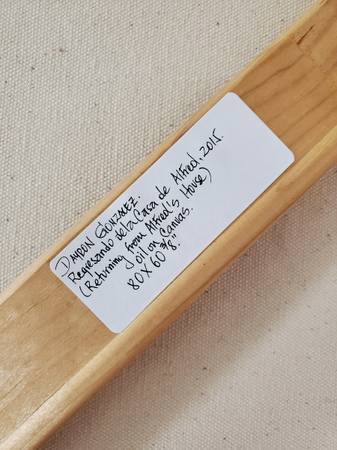 DAYDON GONZALEZ.
Regresando de la Casa de Alfred, 2015.
(Returning from Alfred's House)
oil on Canvas.
80 X 60 3/8".